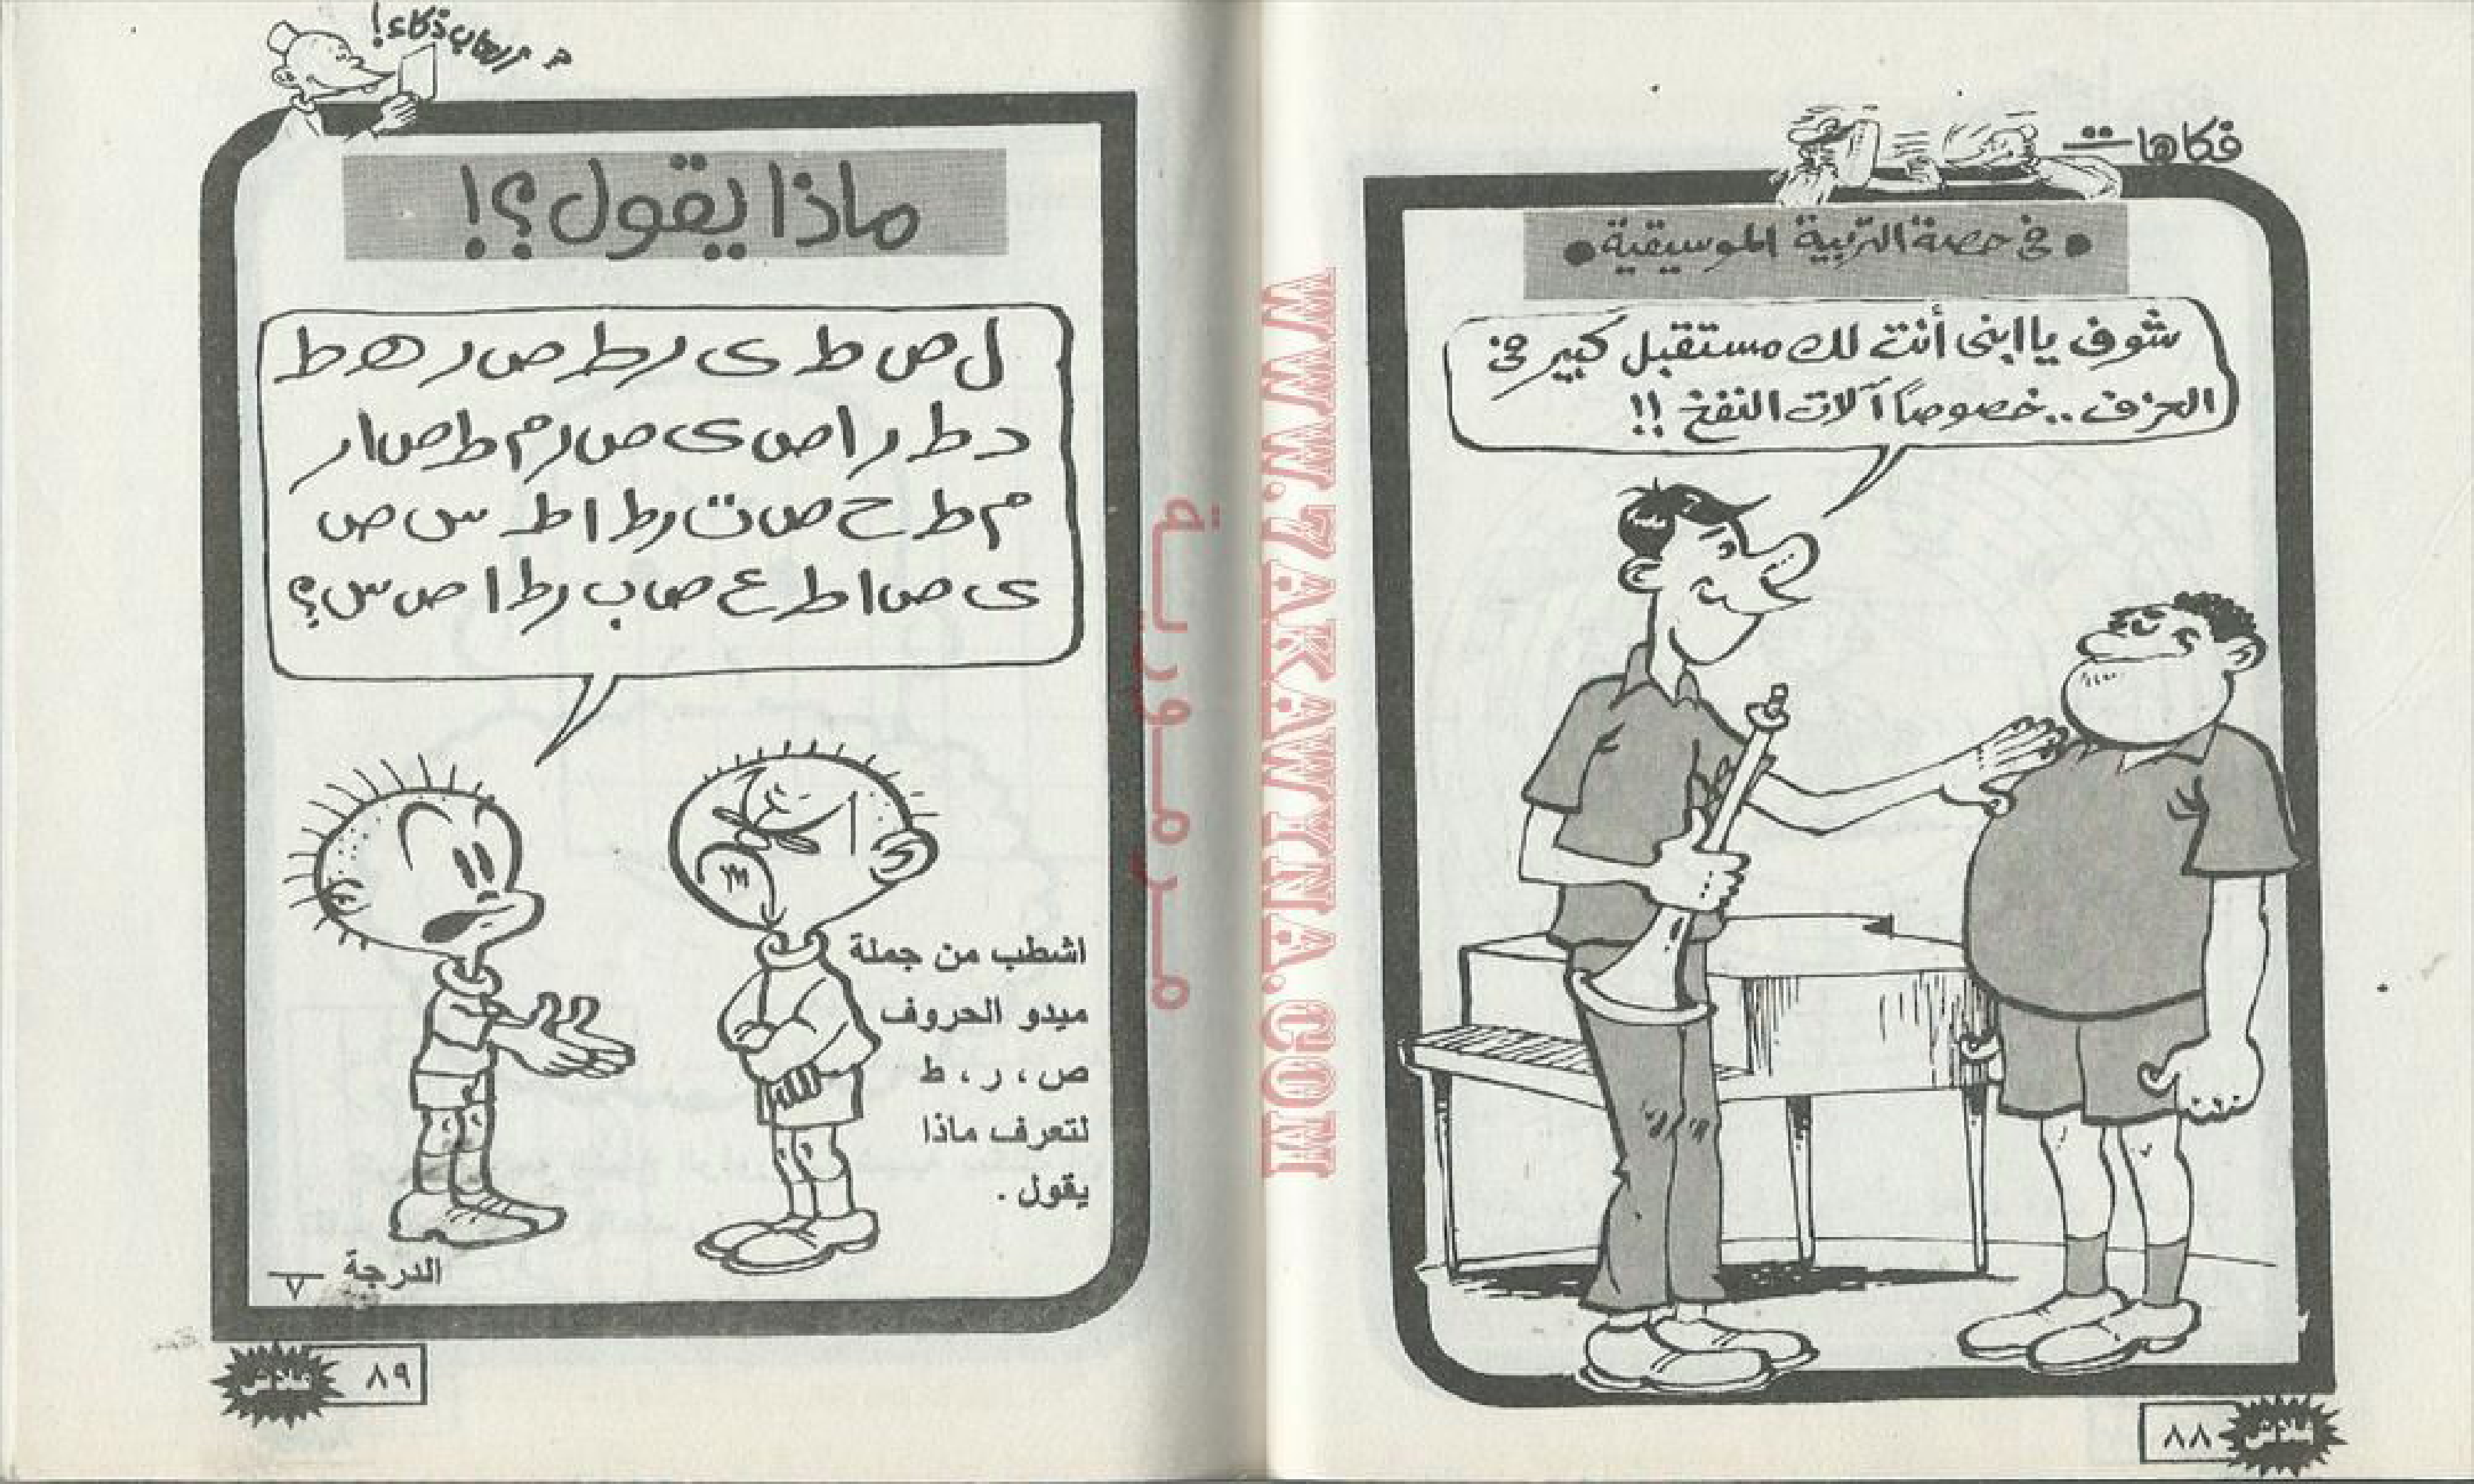 فكاهات
• فى حصة التربية الموسيقية •
شوف يا ابنى أنت لك مستقبل كبير فى
العزف .. خصوصاً آلات النفخ !!
٨٨
فلاش
WWW.7AKAWINA.COM
مـرمـوريـة
ألعاب ذكاء!
ماذا يقول؟!
ل ص ط ى ر ط ص ر ه ط
د ط ر ا ص ى ص ر م ط ص ا ر
م ط ح ص ت ر ط ا ط س ص
ى ص ا ط ع ص ب ر ط ا ص س؟
اشطب من جملة
ميدو الحروف
ص ، ر ، ط
لتعرف ماذا
يقول .
الدرجة ٧
٨٩
فلاش